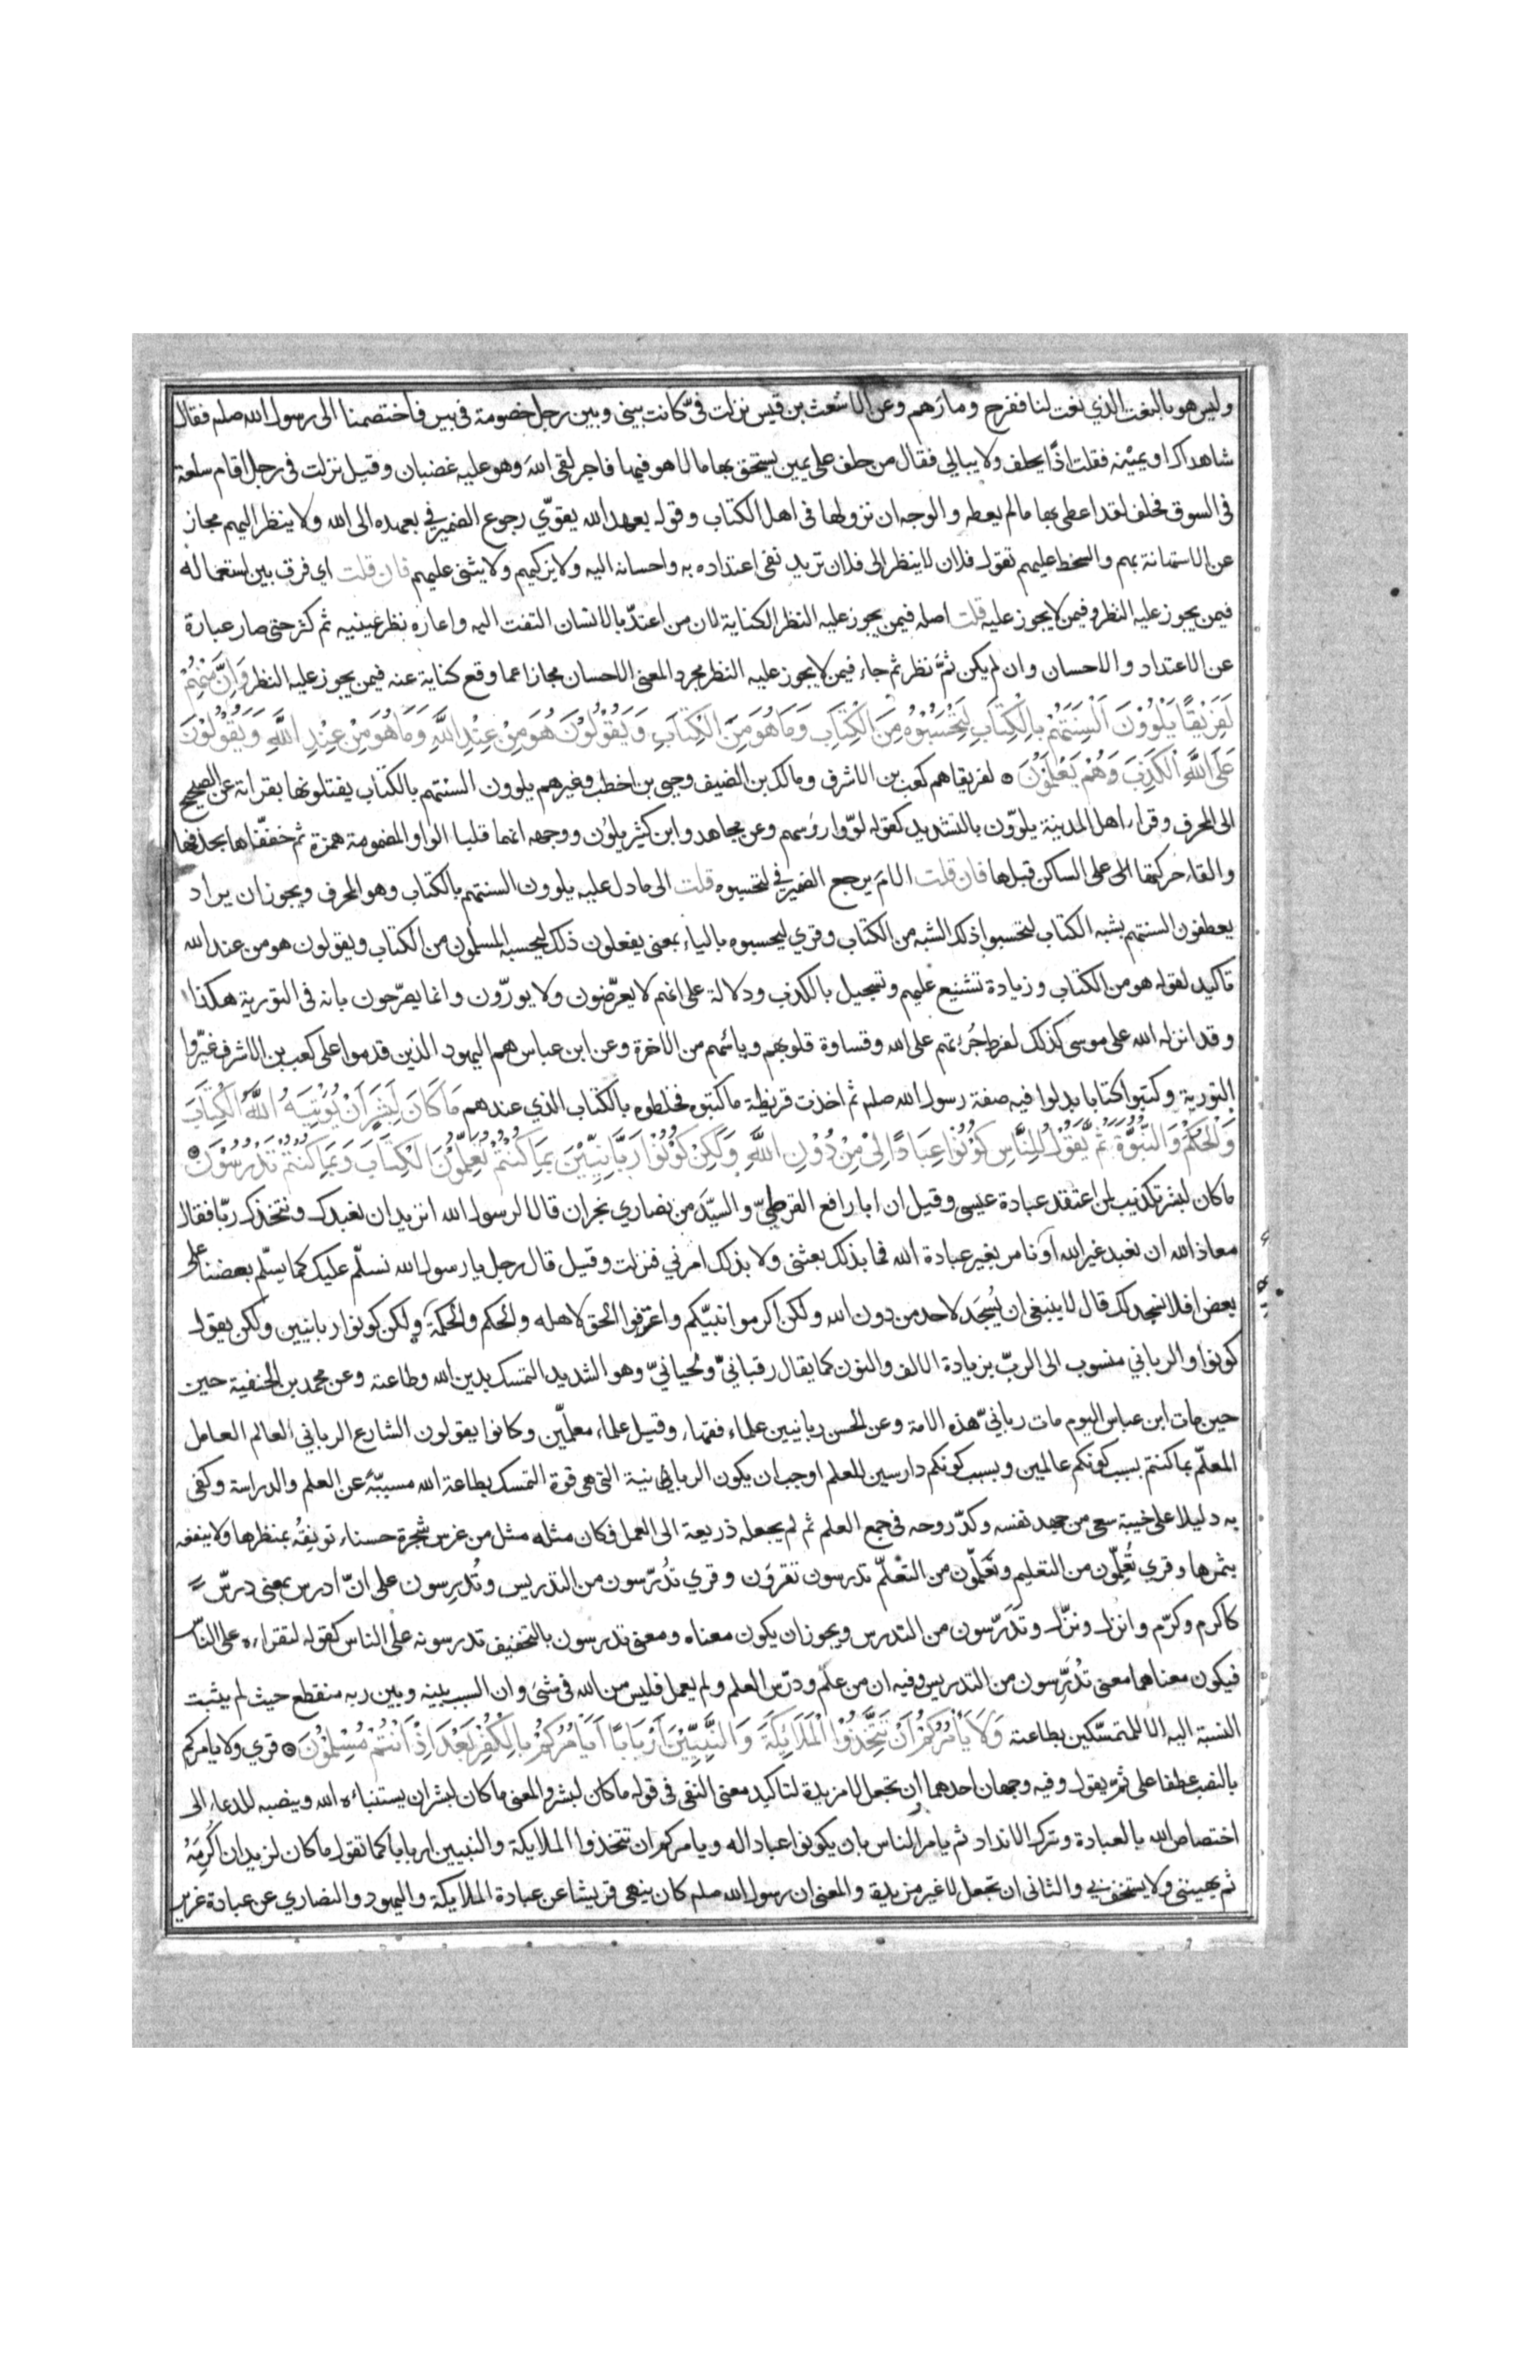 وليس هو بالنعت الذي نعت لنا ففرح ومارهم وعن الاشعث بن قيس نزلت فيّ كانت بيني وبين رجل خصومة في بير فاختصمنا الى رسول الله صلم فقال
شاهداك او يمينه فقلت اذًا يحلف ولا يبالي فقال من حلف على يمين يستحق بها مالا هو فيها فاجر لقي الله وهو عليه غضبان وقيل نزلت في رجل اقام سلعة
في السوق فحلف لقد اعطي بها مالم يعطه والوجه ان نزولها في اهل الكتاب وقوله بعهد الله يقوّي رجوع الضمير في بعهده الى الله ولا ينظر اليهم مجاز
عن الاستهانة بهم والسخط عليهم تقول فلان لا ينظر الى فلان تريد نفي اعتداده به واحسانه اليه ولا يزكيهم ولا يثني عليهم فان قلت اي فرق بين استعماله
فيمن يجوز عليه النظر وفيمن لا يجوز عليه قلت اصله فيمن يجوز عليه النظر الكناية لان من اعتدّ بالانسان التفت اليه واعاره نظر عينيه ثم كثر حتى صار عبارة
عن الاعتداد والاحسان وان لم يكن ثمَّ نظر ثم جاء فيمن لا يجوز عليه النظر مجردا لمعنى الاحسان مجازا عما وقع كناية عنه فيمن يجوز عليه النظر وَاِنَّ مِنْهُمْ
لَفَرِيْقًا يَلْوُوْنَ اَلْسِنَتَهُمْ بِالْكِتَابِ لِتَحْسَبُوْهُ مِنَ الْكِتَابِ وَمَا هُوَ مِنَ الْكِتَابِ وَيَقُوْلُوْنَ هُوَ مِنْ عِنْدِ اللَّهِ وَمَا هُوَ مِنْ عِنْدِ اللَّهِ وَيَقُوْلُوْنَ
عَلَى اللَّهِ الْكَذِبَ وَهُمْ يَعْلَمُوْنَ ۞ لفريقا هم كعب بن الاشرف ومالك بن الضيف وحيي بن اخطب وغيرهم يلوون السنتهم بالكتاب يفتلونها بقراته عن الصحيح
الى المحرف وقراء اهل المدينة يلوّون بالتشديد كقوله لوّوا رؤسهم وعن مجاهد وابن كثير يلوْن ووجهه انهما قلبا الواو المضمومة همزة ثم خففّاها بحذفها
والقاء حركتها الى على الساكن قبلها فان قلت الامَ يرجع الضمير في لتحسبوه قلت الى ما دل عليه يلوون السنتهم بالكتاب وهو المحرف ويجوز ان يراد
يعطفون السنتهم بشبه الكتاب لتحسبوا ذلك الشبه من الكتاب وقري ليحسبوه بالياء بمعنى يفعلون ذلك ليحسبه المسلمون من الكتاب ويقولون هو من عند الله
تاكيد لقوله هو من الكتاب وزيادة تشنيع عليهم وتسجيل بالكذب ودلالة على انهم لا يعرّضون ولا يورّون وانما يصرّحون بانه في التورية هكذا
وقد انزله الله على موسى كذلك لفرط جُراتهم على الله وقساوة قلوبهم وياسهم من الاخرة وعن ابن عباس هم اليهود الذين قدموا على كعب بن الاشرف غيّروا
التورية وكتبوا كتابا بدلوا فيه صفة رسول الله صلم ثم اخذت قريظة ما كتبوه فخلطوه بالكتاب الذي عندهم مَا كَانَ لِبَشَرٍ اَنْ يُوْتِيَهُ اللَّهُ الْكِتَابَ
وَالْحُكْمَ وَالنُّبُوَّةَ ثُمَّ يَقُوْلَ لِلنَّاسِ كُوْنُوْا عِبَادًا لِيْ مِنْ دُوْنِ اللَّهِ وَلٰكِنْ كُوْنُوْا رَبَّانِيِّيْنَ بِمَا كُنْتُمْ تُعَلِّمُوْنَ الْكِتَابَ وَبِمَا كُنْتُمْ تَدْرُسُوْنَ ۞
ما كان لبشر تكذيب لمن اعتقد عبادة عيسى وقيل ان ابا رافع القرظيّ والسيّد من نصاري نجران قالا لرسول الله اتريد ان نعبدك ونتخذك ربّا فقال
معاذ الله ان نعبد غير الله او نامر بغير عبادة الله فما بذلك بعثني ولا بذلك امرني فنزلت وقيل قال رجل يا رسول الله نسلّم عليك كما يسلّم بعضنا على
بعض افلا نسجد لك قال لا ينبغي ان يُسجَد لاحد من دون الله ولكن اكرموا نبيّكم واعرفوا الحق لاهله والحكم والحكمة ولكن كونوا ربانيين ولكن يقول
كونوا والرباني منسوب الى الربّ بزيادة الالف والنون كما يقال رقبانيّ ولحيانيّ وهو الشديد التمسك بدين الله وطاعته وعن محمد بن الحنفية حين
حين مات ابن عباس اليوم مات ربانيّ هذه الامة وعن الحسن ربانيين علماء فقهاء وقيل علماء معلّمين وكانوا يقولون الشارع الرباني العالم العامل
المعلّم بما كنتم بسبب كونكم عالمين وبسبب كونكم دارسين للعلم اوجب ان يكون الربانية التي هي قوة التمسك بطاعة الله مسببّة عن العلم والدراسة وكفى
به دليلا على خيبة سعي من جهد نفسه وكدّ روحه في جمع العلم ثم لم يجعله ذريعة الى العمل فكان مثله مثل من غرس شجرة حسناء تونِقُه بمنظرها ولا ينفعه
بثمرها وقري تُعلّمون من التعليم وتَعَلّمون من التعْلّم تدرسون تقرؤن وقري تُدرّسون من التدريس وتُدرِسون على انّ ادرس بمعنى درّس
كاكرم وكرّم وانزل ونزّل وتدَرّسون من التدرس ويجوز ان يكون معناه ومعنى تدرسون بالتخفيف تدرسونه على الناس كقوله لتقراءه على النّاس
فيكون معناهما معنى تُدَرِّسون من التدريس وفيه ان من علّم ودرّس العلم ولم يعمل فليس من الله في شئ وان السبب بينه وبين ربه منقطع حيث لم يثبت
النسبة اليه الا للمتمسّكين بطاعته وَلَا يَأْمُرَكُمْ اَنْ تَتَّخِذُوْا الْمَلَائِكَةَ وَالنَّبِيِّيْنَ اَرْبَابًا اَيَأْمُرُكُمْ بِالْكُفْرِ بَعْدَ اِذْ اَنْتُمْ مُسْلِمُوْنَ ۞ قري ولا يامركم
بالنصب عطفا على ثم يقول وفيه وجهان احدهما ان تجعل لا مزيدة لتاكيد معنى النفي في قوله ما كان لبشر والمعنى ما كان لبشر ان يستنباءه الله وينصبه للدعاء الى
اختصاص الله بالعبادة وترك الانداد ثم يامر الناس بان يكونوا عبادا له ويامركم ان تتخذوا الملايكة والنبيين اربابا كما تقول ما كان لزيد ان اُكرِمَهُ
ثم يهينني ولا يستخف بي والثاني ان تجعل لا غير مزيدة والمعنى ان رسول الله صلم كان ينهى قريشا عن عبادة الملايكة واليهود والنصاري عن عبادة عزير